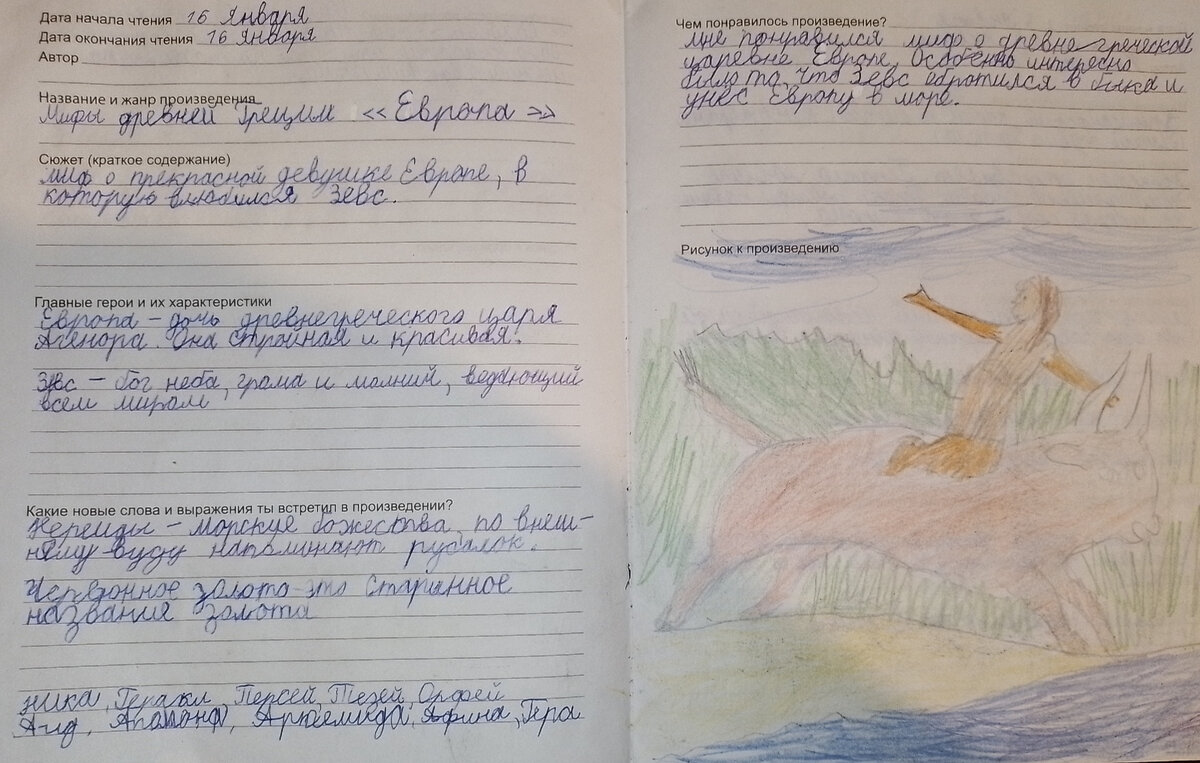 Дата начала чтения 15 Января
Дата окончания чтения 16 Января
Автор
Название и жанр произведения
Мифы древней Греции «Европа»
Сюжет (краткое содержание)
миф о прекрасной девушке Европе, в
которую влюбился Зевс.
Главные герои и их характеристики
Европа – дочь древнегреческого царя
Агенора. Она стройная и красивая.
Зевс – бог неба, грома и молний, ведающий
всем миром
Какие новые слова и выражения ты встретил в произведении?
Нереиды – морские божества, по внеш-
нему виду напоминают русалок.
Червонное золото-это старинное
название золота
ника, Геракл, Персей, Тезей, Орфей
Аид, Артемида, Афина, Гера
Чем понравилось произведение?
мне понравился миф о древнегреческой
царевне Европе. Особенно интересно
было то, что Зевс обратился в быка и
унёс Европу в море.
Рисунок к произведению